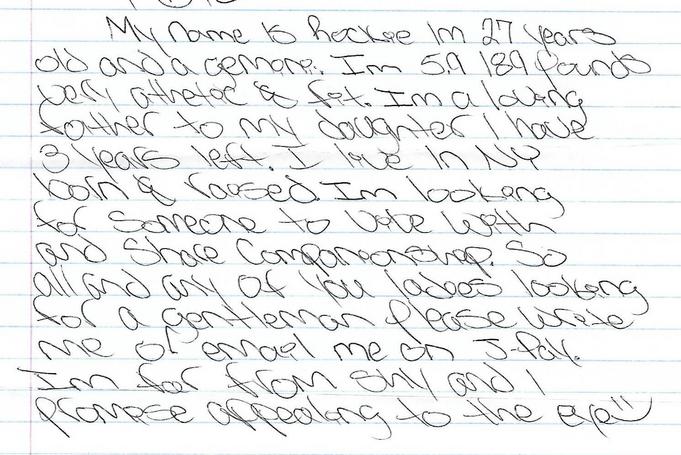 My name is Rockie Im 27 years
old and a gemeni. I'm 5.9 189 pounds
very athetic & fit. Im a loving
father to my daughter I have
3 years left. I live In NY
born & raised. Im looking
for someone to vibe with
and share Companionship. So
all and any of you ladies looking
for a gentleman please write
me or email me on J-Pay.
I'm far from shy and I
promise appealing to the eye